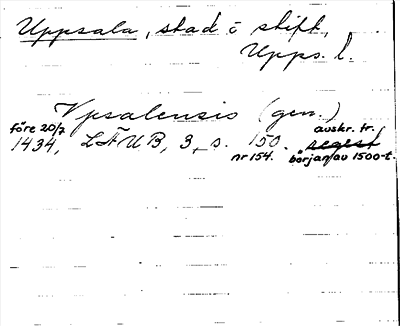 Uppsala, stad o stift,
Upps. l.
Vpsalensis (gen.)
före 20/7 avskr. fr.
1434, LÄUB, 3, s. 150. regest
nr 154. början av 1500-t.